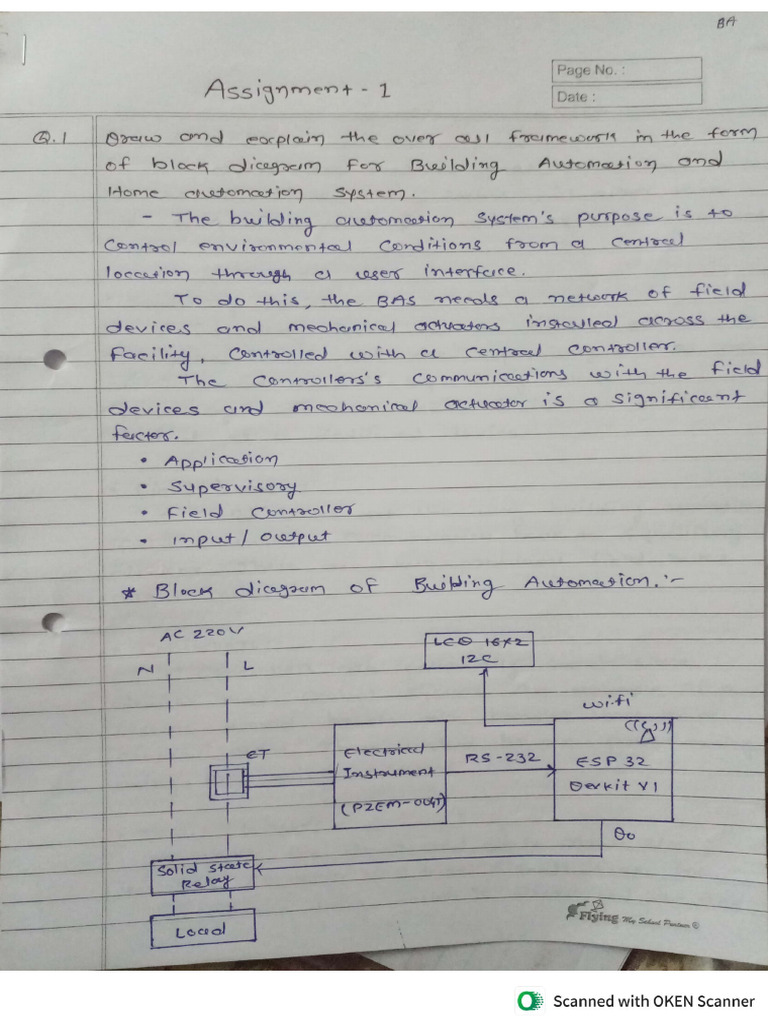 BA
Page No. :
Assignment - 1
Date :
Q.1 Draw and explain the over all framework in the form
of block diagram for Building Automation and
Home automation system.
- The building automation system's purpose is to
control environmental conditions from a central
location through a user interface.
To do this, the BAS needs a network of field
devices and mechanical actuators installed across the
facility, controlled with a central controller.
The controllers's communications with the field
devices and mechanical actuator is a significant
factor.
• Application
• Supervisory
• Field Controller
• Input / Output
* Block diagram of Building Automation. :-
AC 220V
LCD 16x2
I2C
N
L
wifi
CT
Electrical
Instrument
(PZEM-004T)
RS-232
ESP 32
Devkit V1
Do
Solid State
Relay
Load
Flying My School Partner ®
Scanned with OKEN Scanner